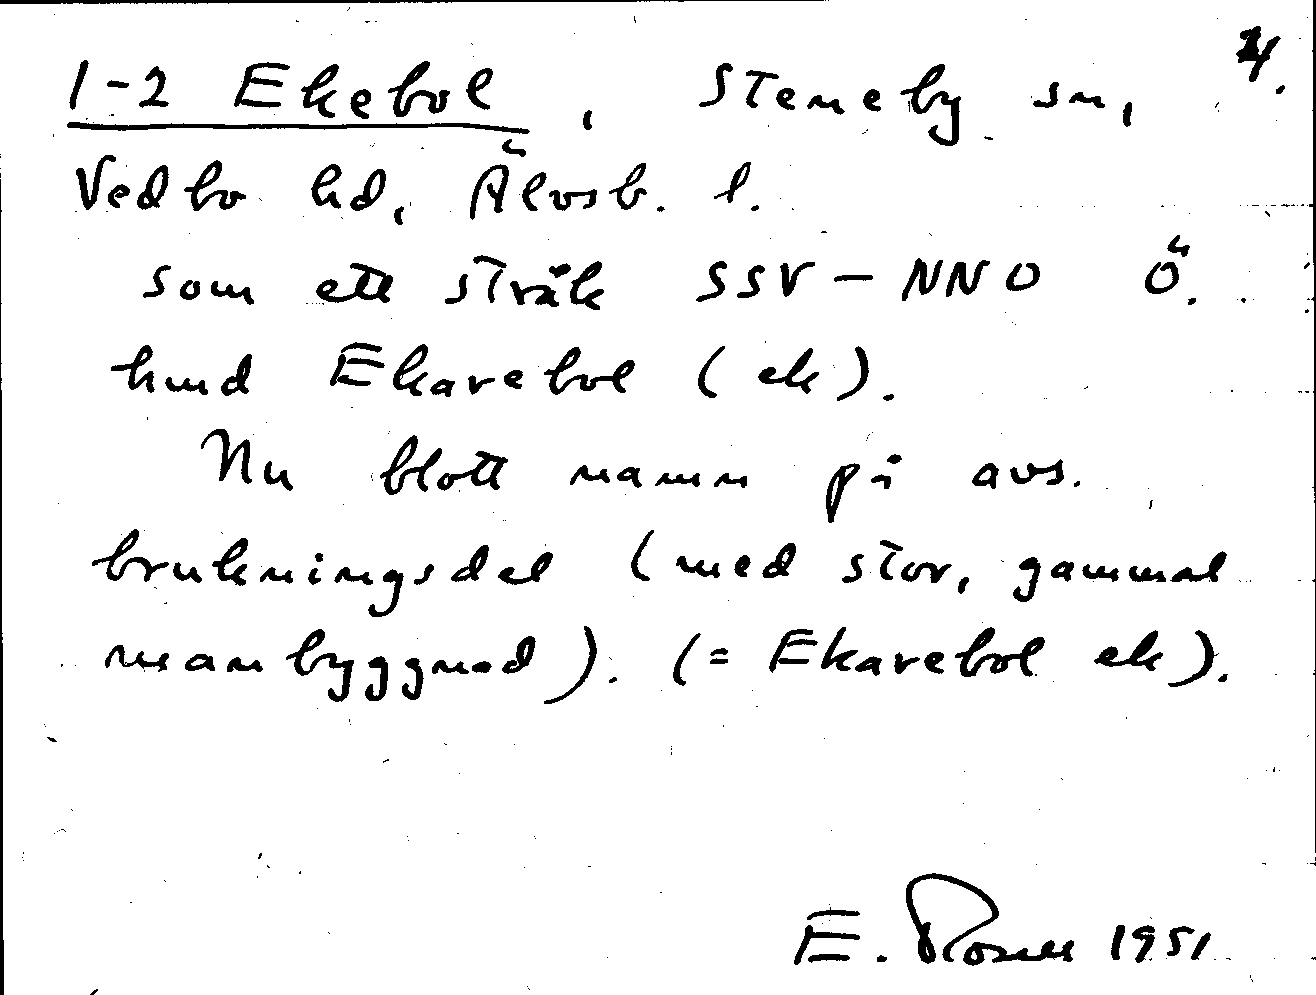 4.
1-2 Ekebol, Steneby sn,
Vedbo hd, Älvsb. l.
som ett stråk SSV - NNO Ö.
kund Ekarebol (ek).
Nu blott namn på avs.
brukningsdel (med stor, gammal
manbyggnad). (= Ekarebol ek).
E. Rosell 1951